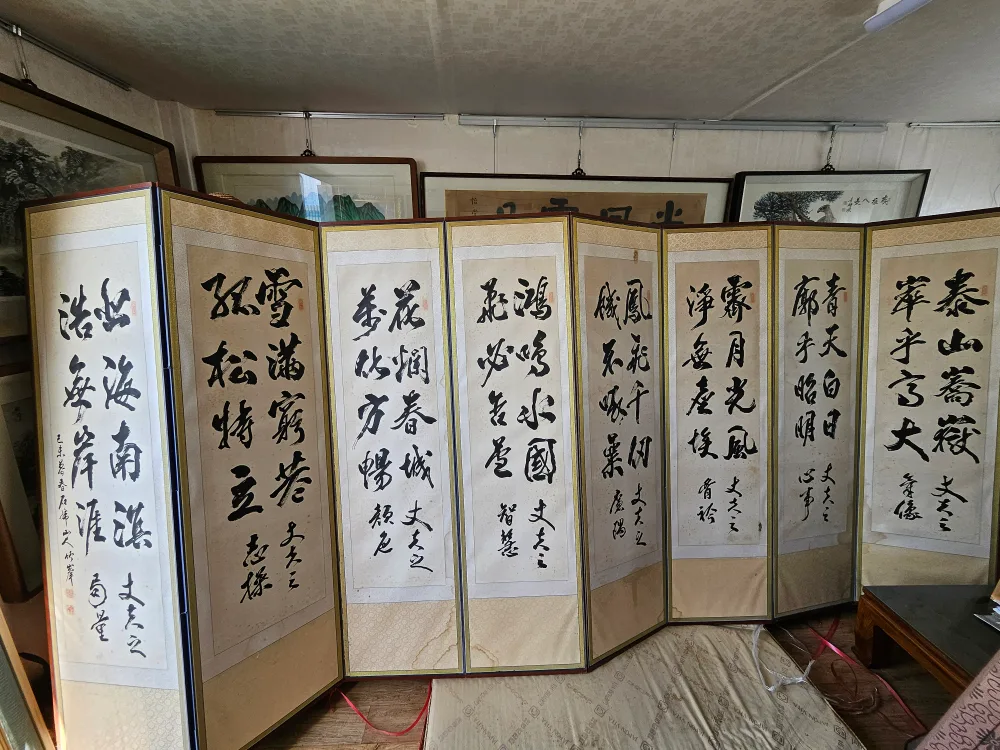 泰山喬嶽
崒乎高大
丈夫之
氣像
青天白日
廓乎昭明
丈夫之
心事
霽月光風
淨無塵埃
丈夫之
胷衿
鳳飛千仞
飢不啄粟
丈夫之
廉隅
鴻鳴水國
飛必含蘆
丈夫之
智慧
花爛春城
萬化方暢
丈夫之
顔色
雪滿窮巷
孤松特立
丈夫之
志操
北海南溟
浩無岸涯
丈夫之
局量
光風霽月